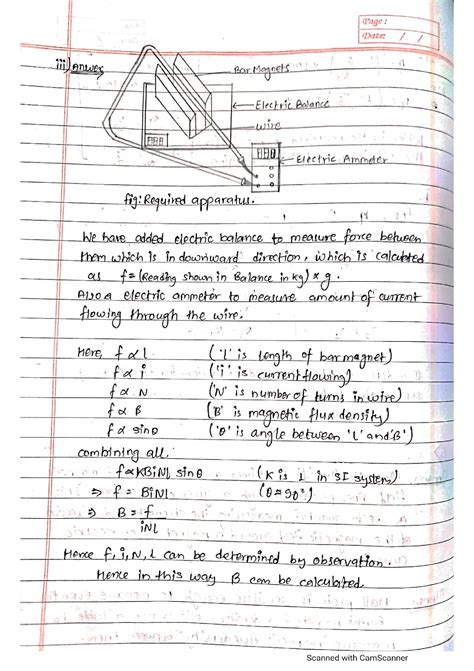 Page:
Date: / /
iii) Answer
Bar Magnets
Electric Balance
wire
Electric Ammeter
fig: Required apparatus.
We have added electric balance to measure force between
them which is in downward direction, which is calculated
as f = (Reading shown in Balance in kg) × g.
Also a electric ammeter to measure amount of current
flowing through the wire.
Here, f α l ('l' is length of bar magnet)
f α i ('i' is current flowing)
f α N ('N' is number of turns in wire)
f α B ('B' is magnetic flux density)
f α sinθ ('θ' is angle between 'L' and 'B')
combining all.
f α KBiNl sinθ (K is 1 in SI system)
⇒ f = BiNl (θ = 90°)
⇒ B = f
iNl
Hence f, i, N, l can be determined by observation.
Hence in this way B can be calculated.
Scanned with CamScanner